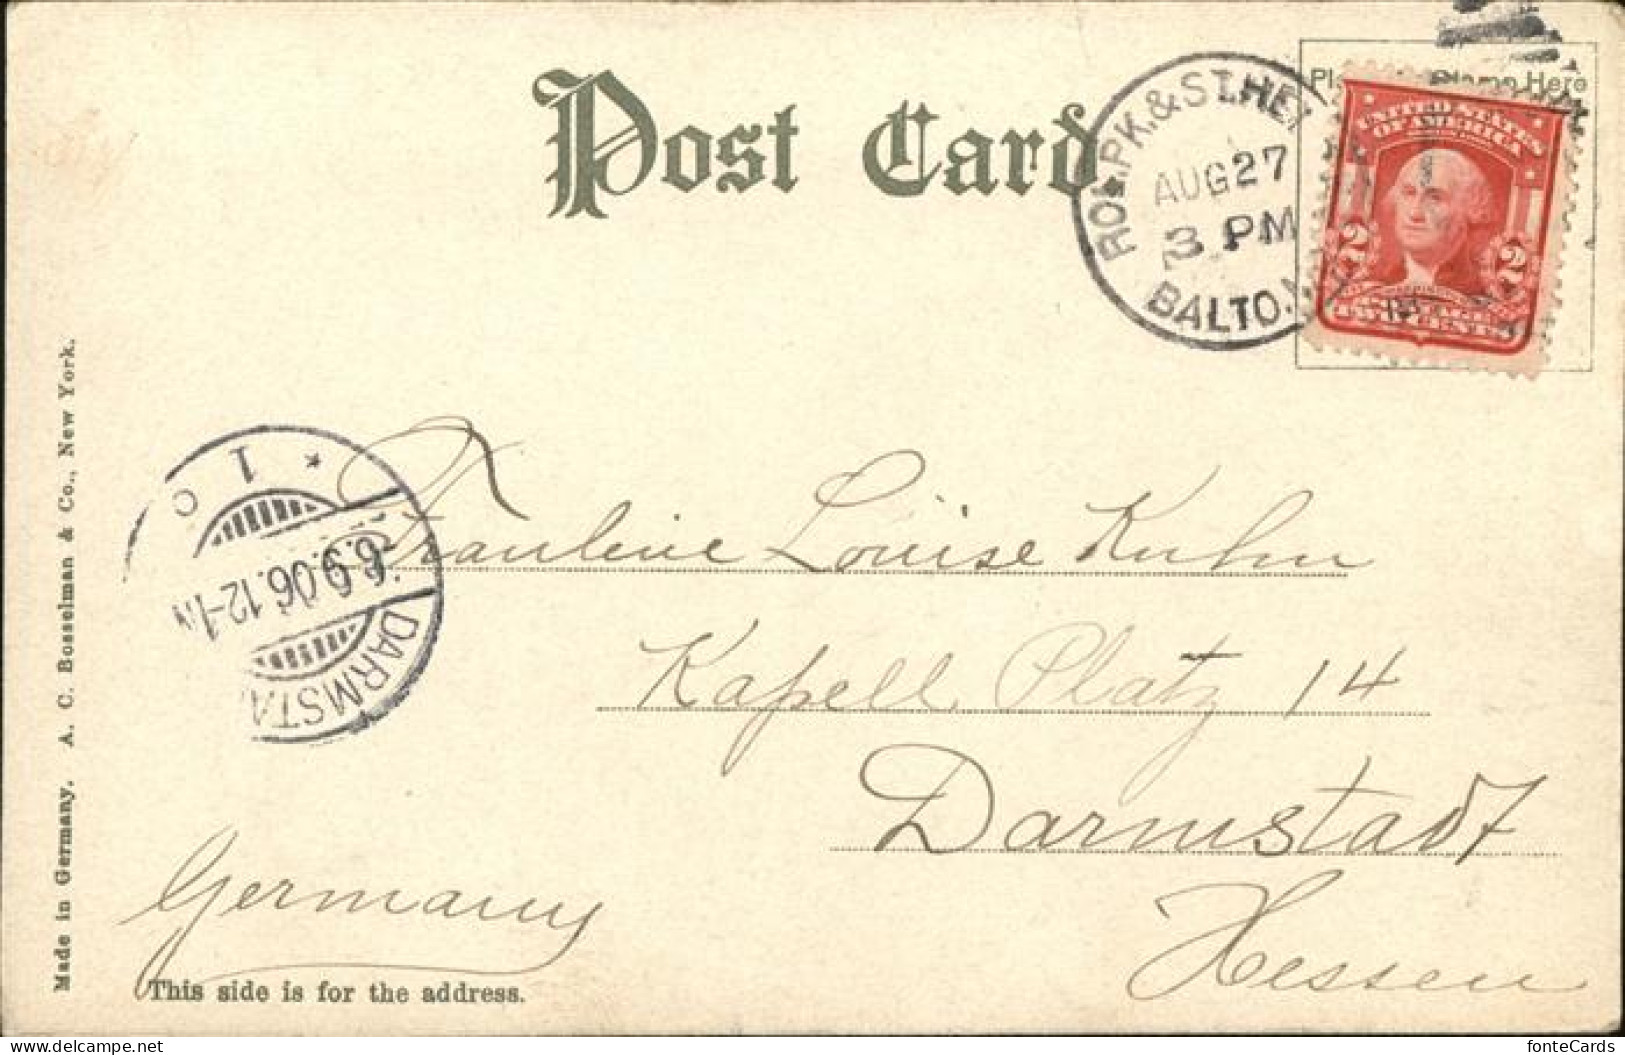 Post Card
ROL.PK.&ST.HE
AUG 27
3 PM
BALTO.
Here
UNITED STATES
OF AMERICA
2 2
TWO CENTS
1 c
6.9.06.12-1N
DARMSTA
Fräuleine Louise Kuhn
Kapell Platz 14
Darmstadt
Hessen
Germany
This side is for the address.
Made in Germany. A. C. Bosselman & Co., New York.
delcampe.net
fonteCards